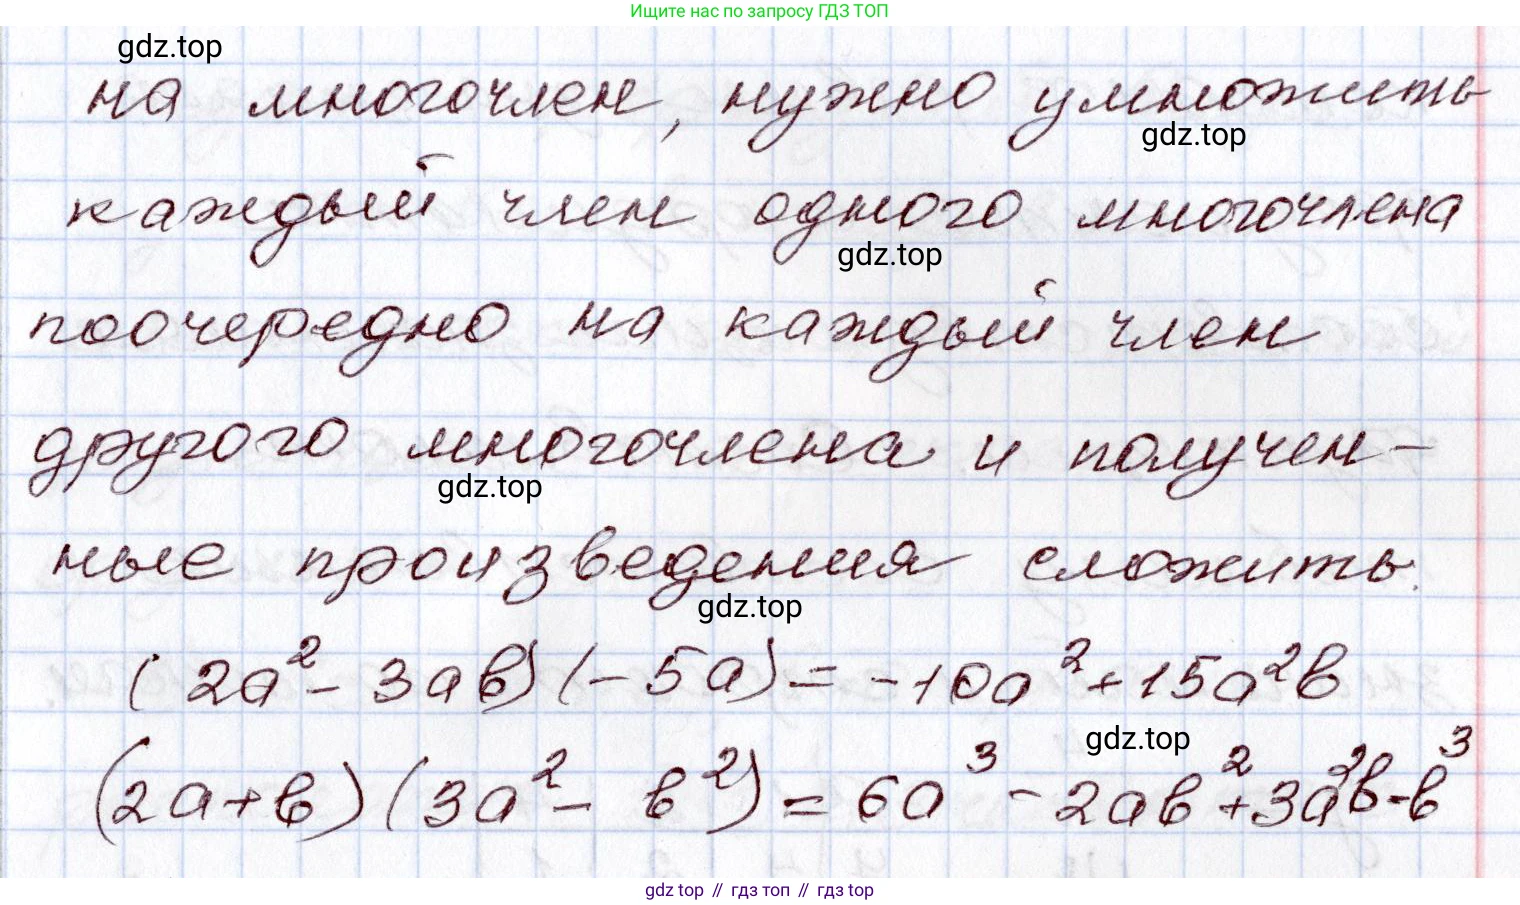 Ищите нас по запросу ГДЗ ТОП
gdz.top
на многочлен, нужно умножить
gdz.top
каждый член одного многочлена
gdz.top
поочередно на каждый член
другого многочлена и получен-
gdz.top
ные произведения сложить.
gdz.top
(2a² - 3ab)(-5a) = -10a² + 15a²b
gdz.top
(2a+b)(3a² - b²) = 6a³ - 2ab² + 3a²b - b³
gdz top // гдз топ // гдз top